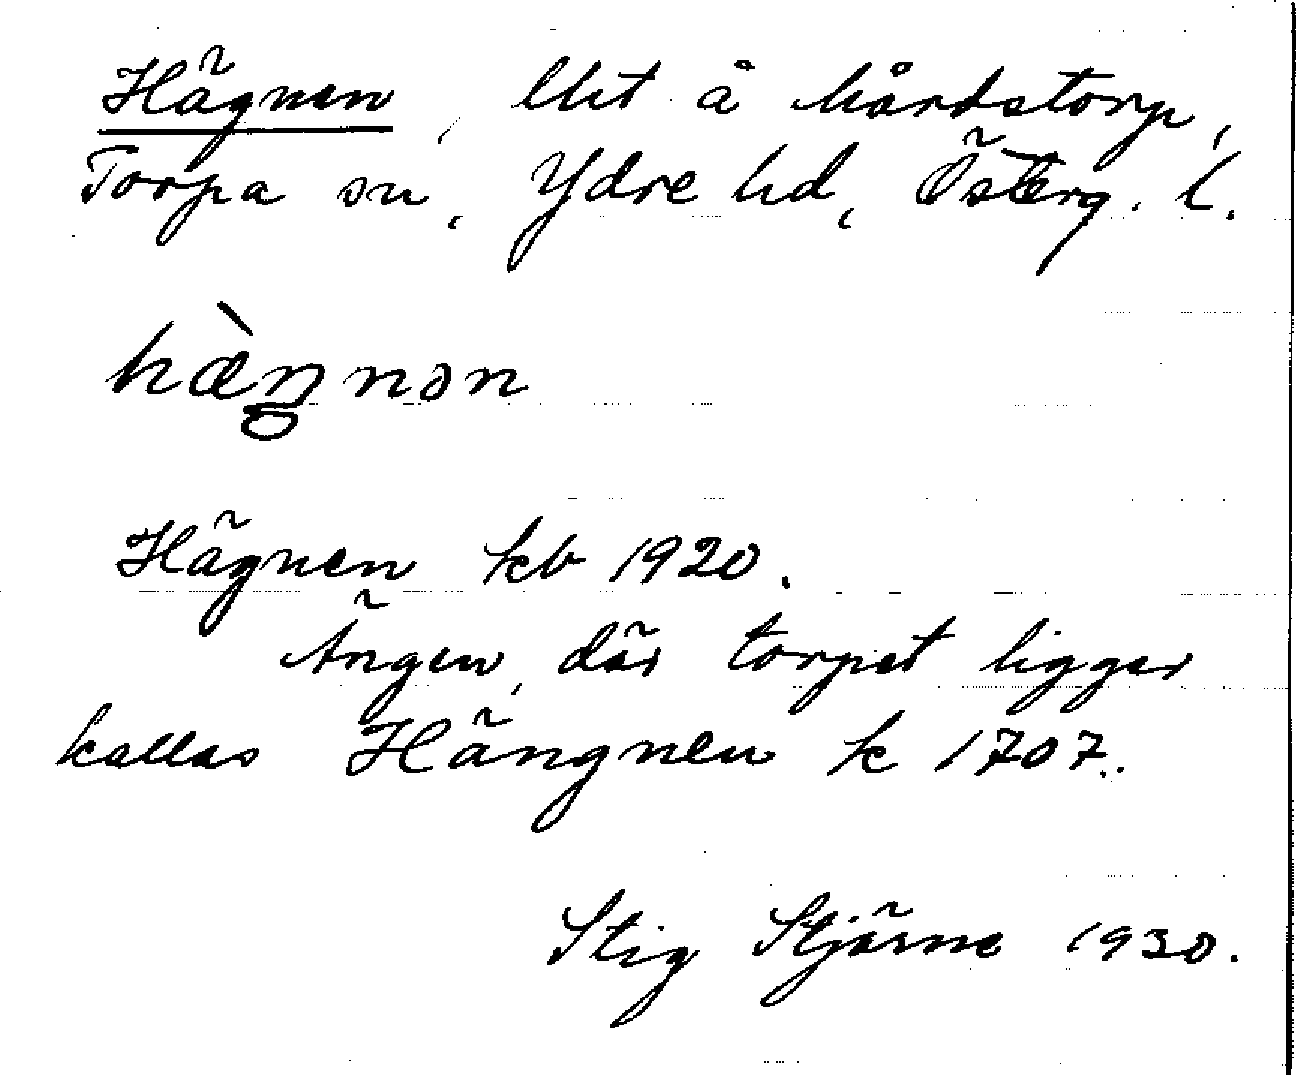 Hägnen, lht å Mårdstorp,
Torpa sn, Ydre hd, Österg. l.
hæ̀ŋnən
Hägnen kb 1920.
Ängen, där torpet ligger
kallas Hängnen k 1707.
Stig Stjärne 1930.